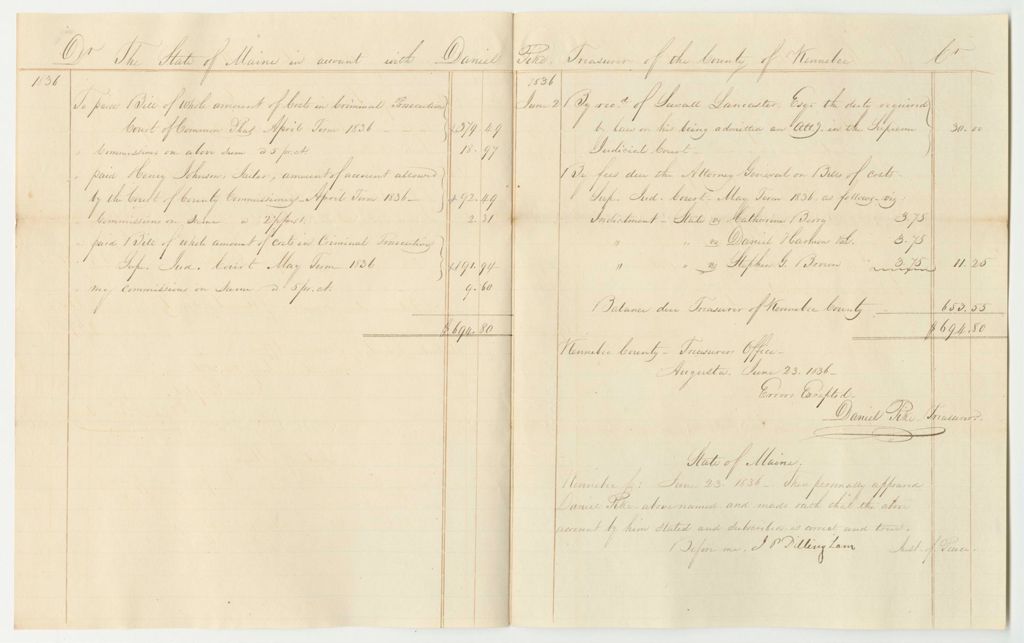 Dr The State of Maine in account with Daniel Pike, Treasurer of the County of Kennebec Cr
1836
To paid 1 Bill of whole amount of Costs in Criminal Prosecutions
Court of Common Pleas April Term 1836 379.49
" Commissions on above sum @ 5 pr. ct 18.97
" paid Henry Johnson, Jailer, amount of account allowed
by the Court of County Commissioners April Term 1836 92.49
" Commissions on Same @ 2½ pr ct. 2.31
" paid 1 Bill of whole amount of costs in Criminal Prosecutions
Sup. Jud. Court May Term 1836 191.94
" my commissions on Same @ 5 pr. ct. 9.60
$694.80
1836
June 2 By rec.d of Sewall Lancaster, Esqr the duty required
by law on his being admitted an Atty. in the Supreme
Judicial Court 30.00
By fees due the Attorney General on Bills of costs
Sup. Jud. Court May Term 1836 as follows viz
Indictment State vs Catharine Berry 3.75
" " vs Daniel Harmon al. 3.75
" " vs Stephen G. Brown 3.75 11.25
Balance due Treasurer of Kennebec County 653.55
$694.80
Kennebec County Treasurers Office
Augusta, June 23, 1836
Errors Excepted.
Daniel Pike Treasurer.
State of Maine.
Kennebec ss: June 23. 1836 then personally appeared
Daniel Pike above named and made oath that the above
account by him stated and subscribed is correct and true.
Before me, J P Dillingham Just. of Peace.